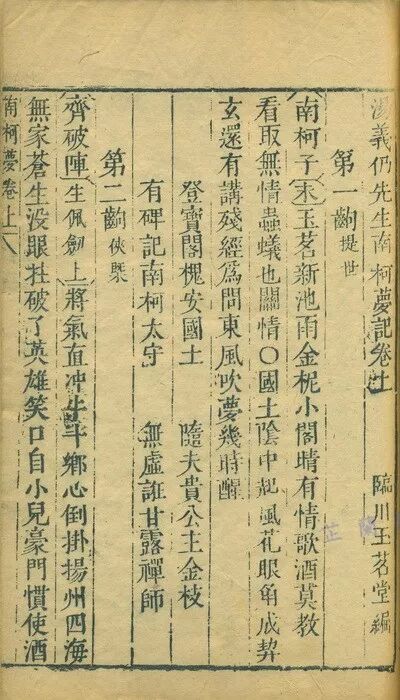 湯義仍先生南柯夢記卷上　臨川玉茗堂編
第一齣 提世
南柯子（末）玉茗新池雨金柅小閣晴有情歌酒莫教
看取無情蟲蟻也關情○國土陰中起風花眼角成契
玄還有講殘經爲問東風吹夢幾時醒
登寶閣槐安國土　隨夫貴公主金枝
有碑記南柯太守　無虛誑甘露禪師
第二齣 俠槩
齊破陣（生佩劍上）將氣直冲牛斗鄉心倒掛揚州四海
無家蒼生没眼拄破了英雄笑口自小兒豪門慣使酒
南柯夢卷上